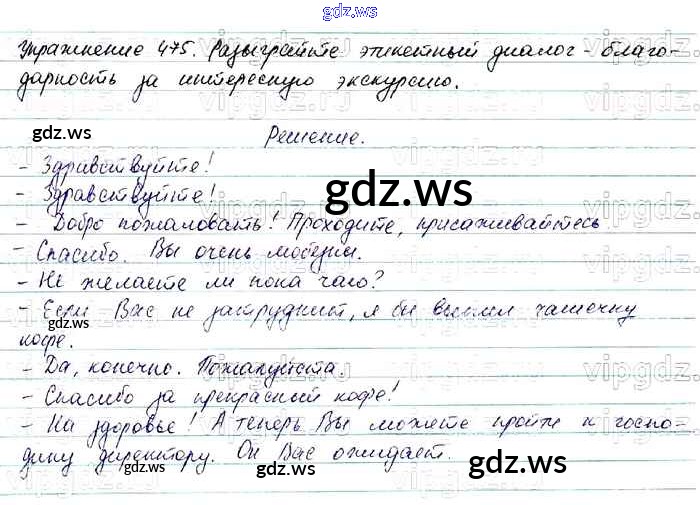 gdz.ws
Упражнение 475. Разыграйте этикетный диалог - благо-
дарность за интересную экскурсию.
gdz.ws
Решение.
- Здравствуйте!
- Здравствуйте!
gdz.ws
- Добро пожаловать! Проходите, присаживайтесь.
- Спасибо. Вы очень любезны.
- Не желаете ли пока чаю?
- Если Вас не затруднит, я бы выпил чашечку
кофе.
gdz.ws
- Да, конечно. Пожалуйста.
- Спасибо за прекрасный кофе!
- На здоровье! А теперь Вы можете пройти к госпо-
дину директору. Он Вас ожидает.
gdz.ws
gdz.ws